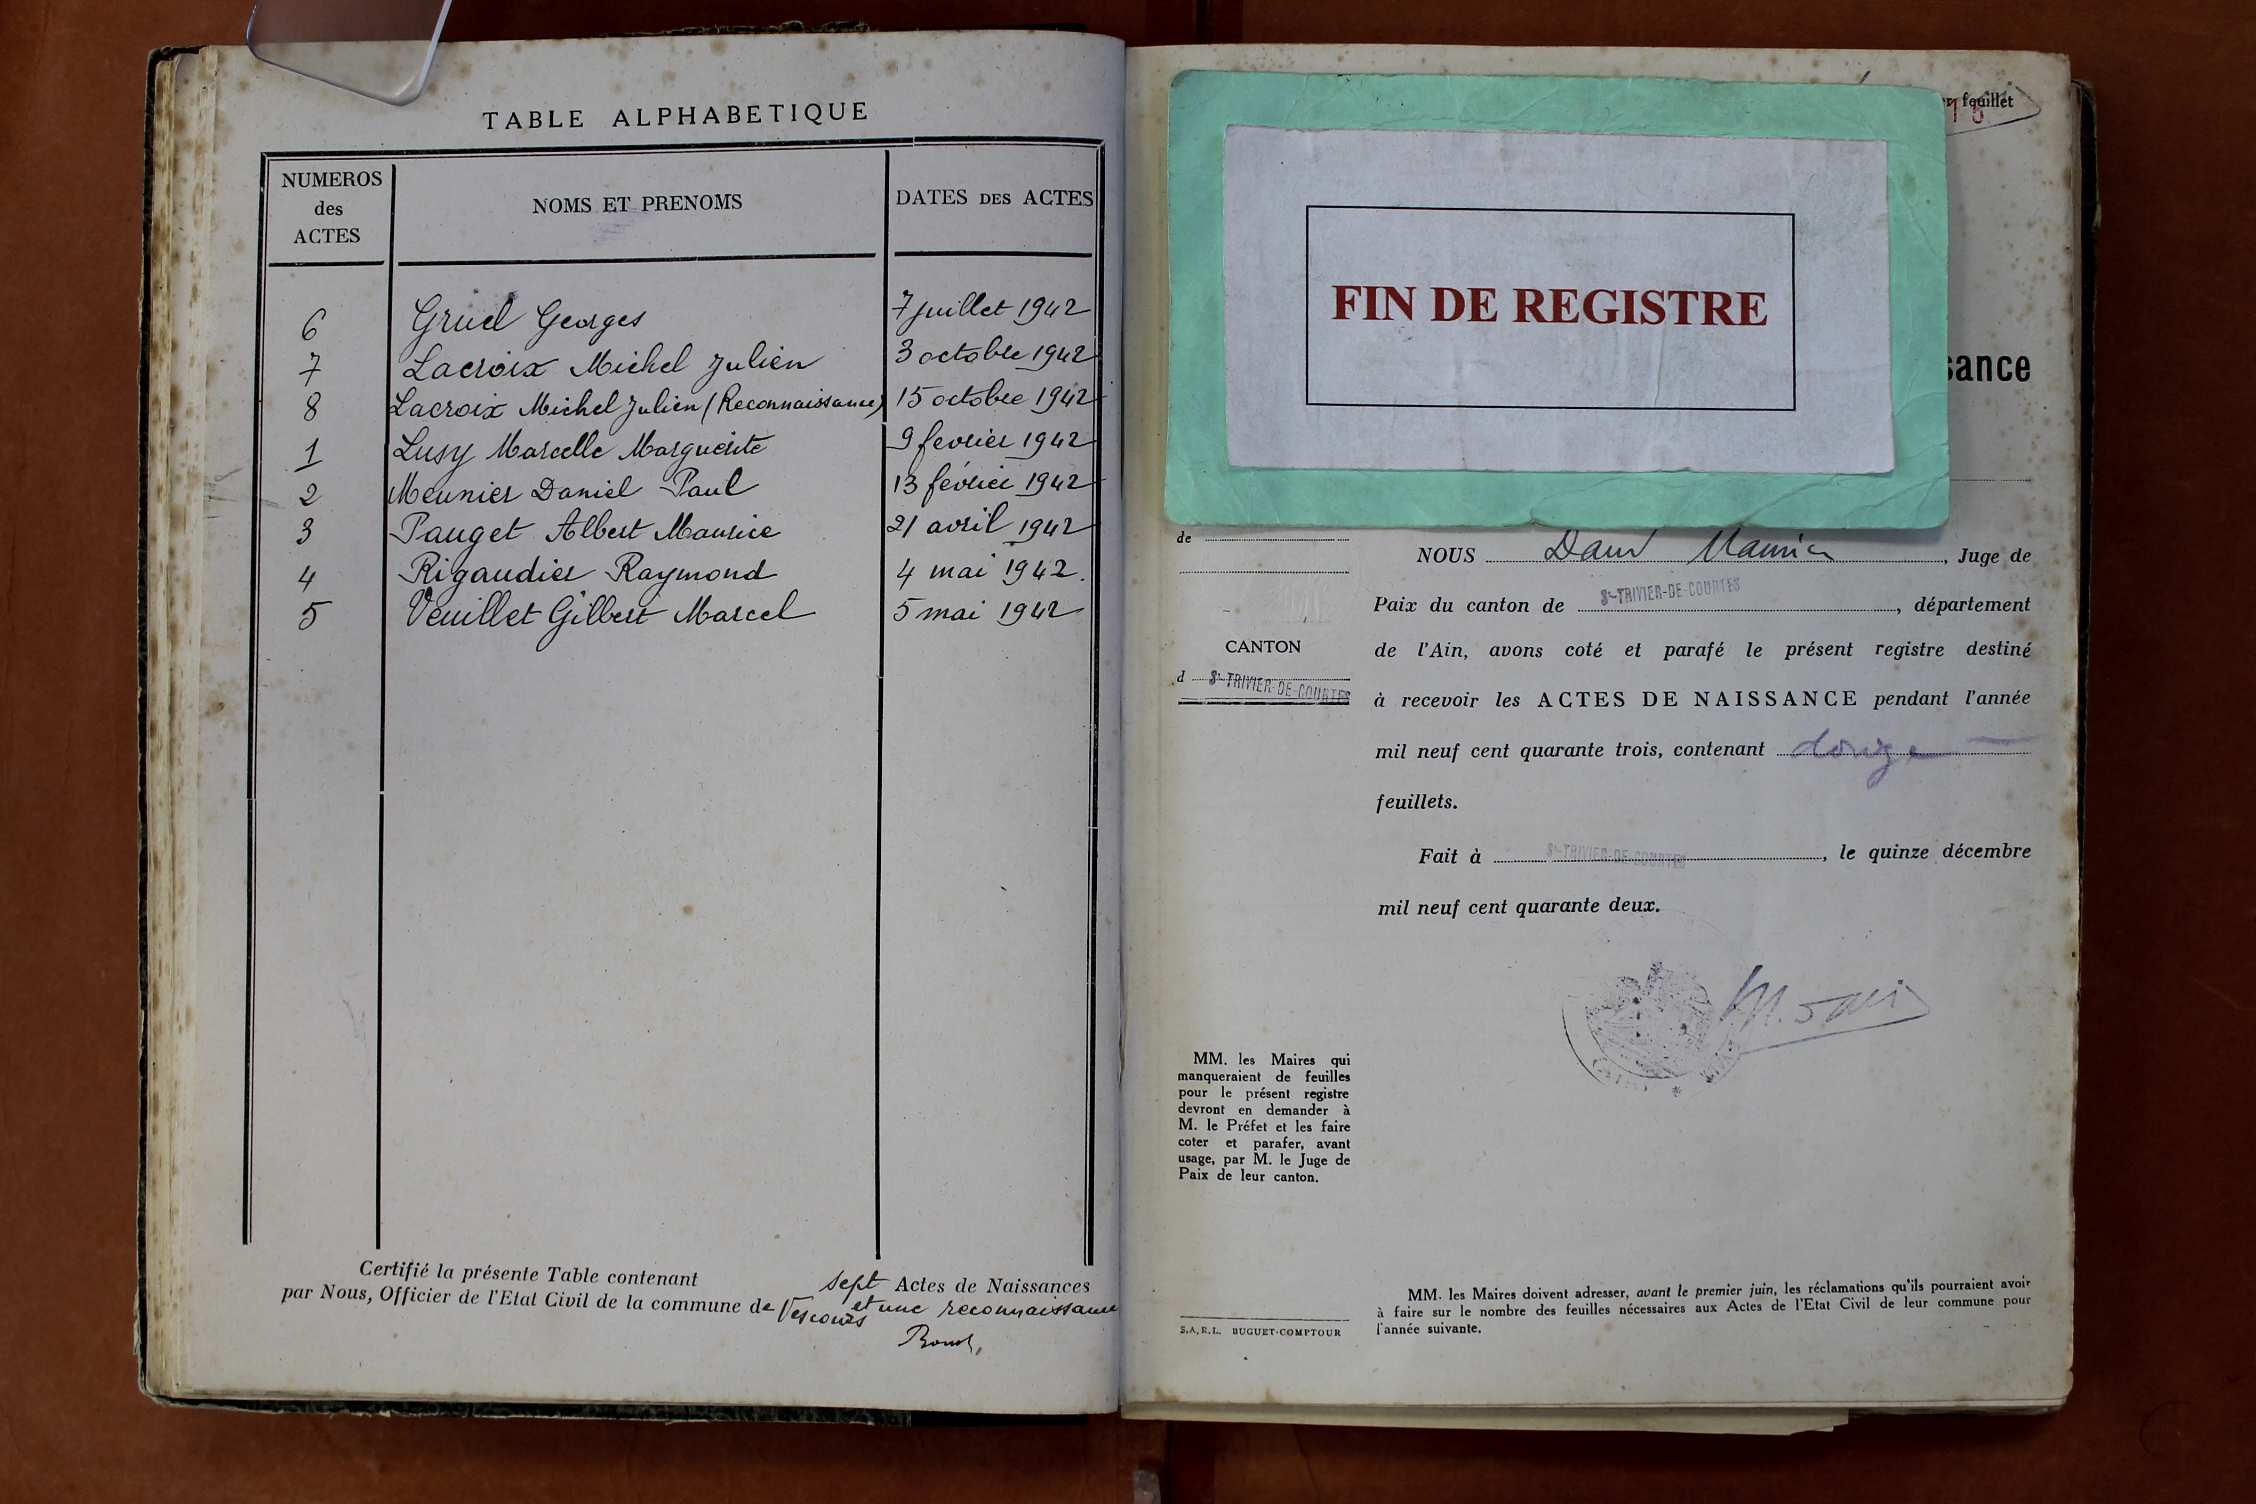 TABLE ALPHABETIQUE
NUMEROS
des
ACTES
NOMS ET PRENOMS
DATES DES ACTES
6 Gruel Georges 7 juillet 1942
7 Lacroix Michel Julien 3 octobre 1942
8 Lacroix Michel Julien (Reconnaissance) 15 octobre 1942
1 Lusy Marcelle Marguerite 9 fevrier 1942
2 Meunier Daniel Paul 13 février 1942
3 Pauget Albert Maurice 21 avril 1942
4 Rigaudier Raymond 4 mai 1942.
5 Veuillet Gilbert Marcel 5 mai 1942
Certifié la présente Table contenant sept Actes de Naissances
par Nous, Officier de l'Etat Civil de la commune de Vescours et une reconnaissance
feuillet
15
FIN DE REGISTRE
sance
de
NOUS Maurice, Juge de
Paix du canton de St-TRIVIER-DE-COURTES, département
de l'Ain, avons coté et parafé le présent registre destiné
à recevoir les ACTES DE NAISSANCE pendant l'année
mil neuf cent quarante trois, contenant douze
feuillets.
Fait à St-TRIVIER-DE-COURTES, le quinze décembre
mil neuf cent quarante deux.
CANTON
d St-TRIVIER-DE-COURTES
MM. les Maires qui
manqueraient de feuilles
pour le présent registre
devront en demander à
M. le Préfet et les faire
coter et parafer, avant
usage, par M. le Juge de
Paix de leur canton.
S.A.R.L. BUGUET-COMPTOUR
MM. les Maires doivent adresser, avant le premier juin, les réclamations qu'ils pourraient avoir
à faire sur le nombre des feuilles nécessaires aux Actes de l'Etat Civil de leur commune pour
l'année suivante.